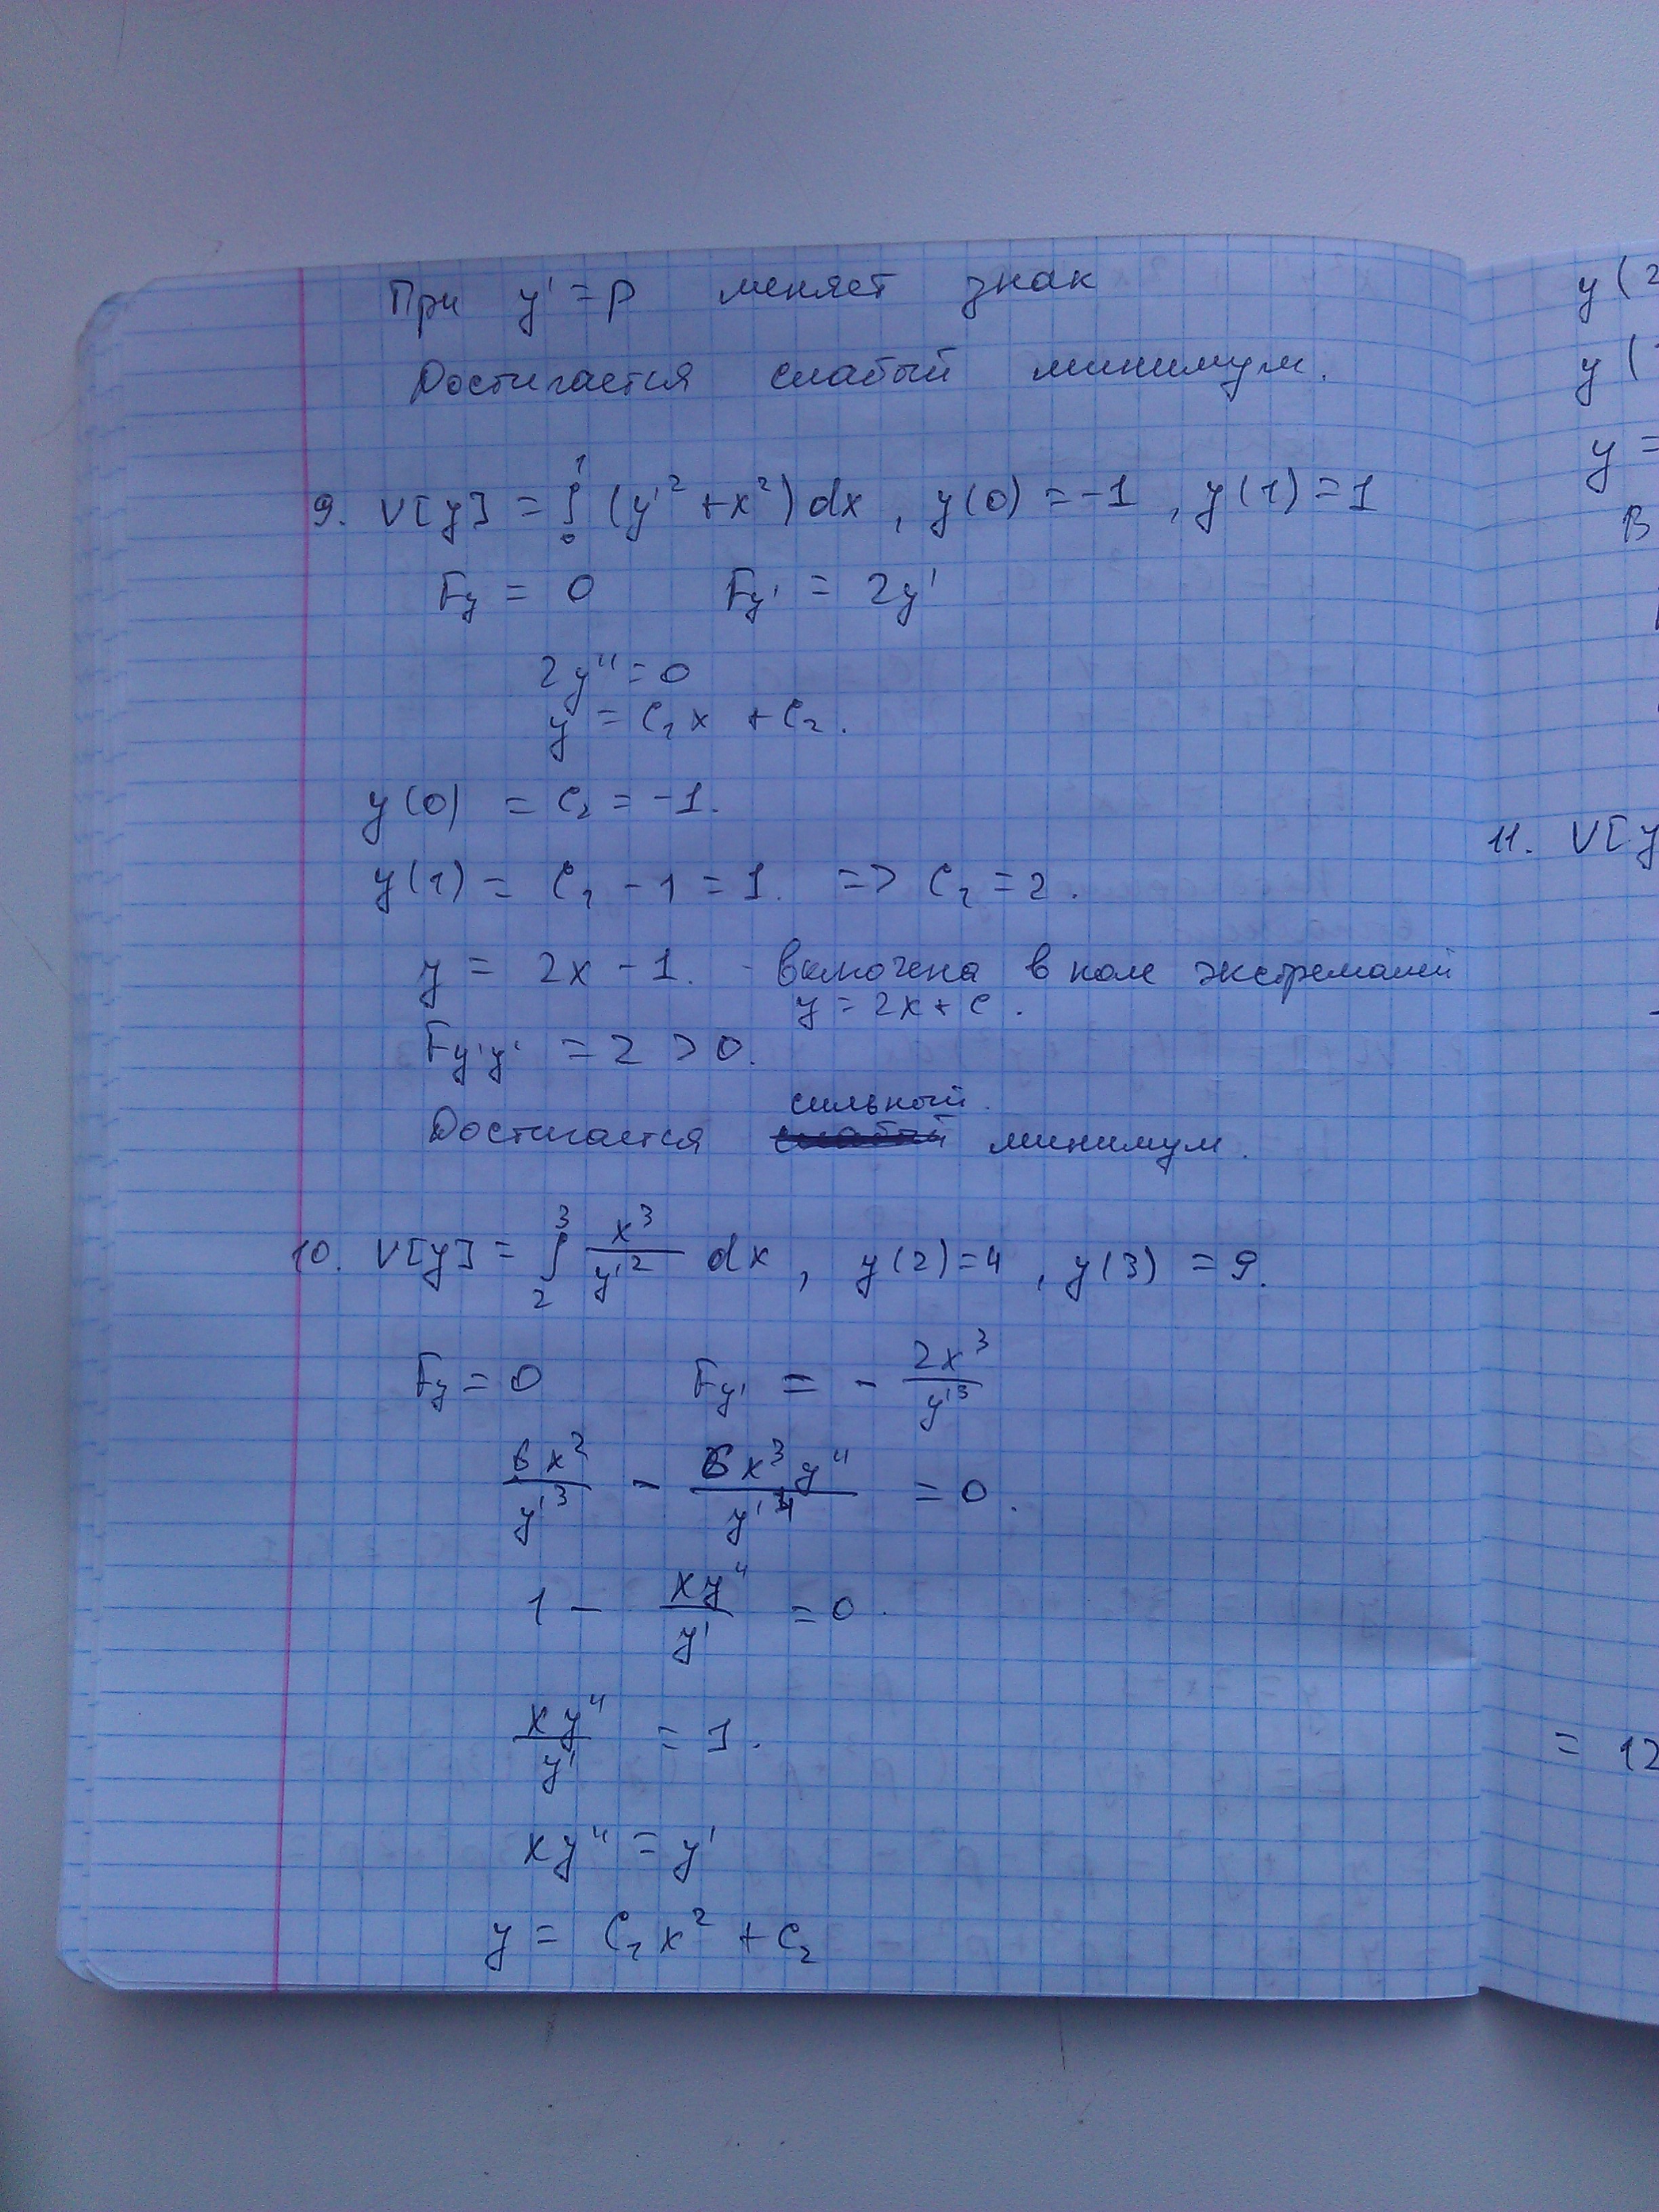 При y' = p меняет знак
Достигается слабый минимум.
9. V[y] = ∫₀¹ (y'² + x²) dx, y(0) = -1, y(1) = 1
F_y = 0 F_y' = 2y'
2y'' = 0
y = C₁x + C₂.
y(0) = C₂ = -1.
y(1) = C₁ - 1 = 1. => C₁ = 2.
y = 2x - 1. - включена в поле экстремалей
y = 2x + C.
F_y'y' = 2 > 0.
сильный
Достигается слабый минимум.
10. V[y] = ∫₂³ x³/y'² dx, y(2) = 4, y(3) = 9.
F_y = 0 F_y' = - 2x³/y'³
6x²/y'³ - 6x³y''/y'⁴ = 0.
1 - xy''/y' = 0.
xy''/y' = 1.
xy'' = y'
y = C₁x² + C₂
y(2
y(
y =
В
11. V[y
= 12